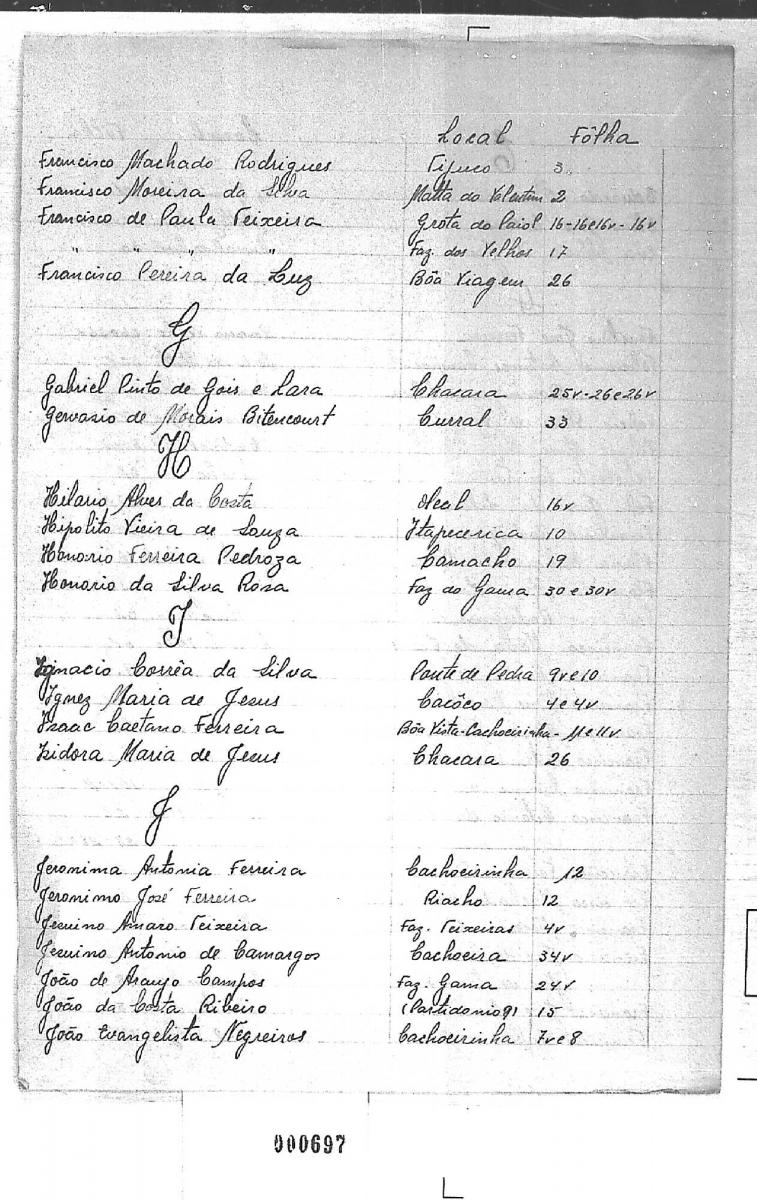 Local Fôlha
Francisco Machado Rodrigues Tijuco 3
Francisco Moreira da Silva Matta do Valentim 2
Francisco de Paula Teixeira Grota do Paiol 16-16e16v-16v
" " " " Faz. dos Velhos 17
Francisco Pereira da Luz Bôa Viagem 26
G
Gabriel Pinto de Gois e Lara Chacara 25v-26e26v
Gervasio de Morais Bitencourt Curral 33
H
Hilario Alves da Costa 16v
Hipolito Vieira de Souza Itapecerica 10
Honorio Ferreira Pedroza Camacho 19
Honorio da Silva Rosa Faz do Gama 30 e 30v
I
Ignacio Corrêa da Silva Ponte de Pedra 9ve10
Ignez Maria de Jesus Cacôco 4e4v
Isaac Caetano Ferreira Bôa Vista-Cachoeirinha-11e11v
Izidora Maria de Jesus Chacara 26
J
Jeronima Antonia Ferreira Cachoeirinha 12
Jeronimo José Ferreira Riacho 12
Jesuino Amaro Teixeira Faz. Teixeiras 4v
Jesuino Antonio de Camargos Cachoeira 34v
João de Araujo Campos Faz. Gama 24v
João da Costa Ribeiro 15
João Evangelista Negreiros Cachoeirinha 7ve8
000697